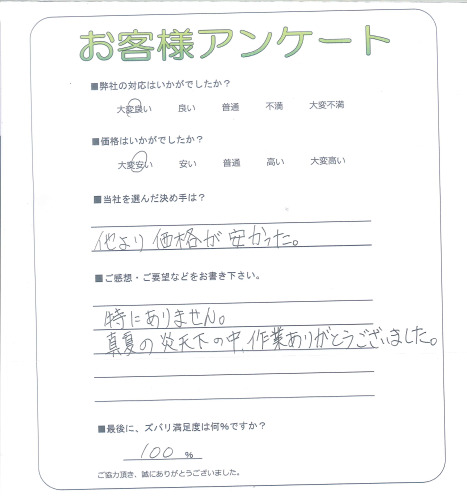 お客様アンケート
■弊社の対応はいかがでしたか？
大変良い 良い 普通 不満 大変不満
■価格はいかがでしたか？
大変安い 安い 普通 高い 大変高い
■当社を選んだ決め手は？
他より価格が安かった。
■ご感想・ご要望などをお書き下さい。
特にありません。
真夏の炎天下の中、作業ありがとうございました。
■最後に、ズバリ満足度は何％ですか？
100 %
ご協力頂き、誠にありがとうございました。